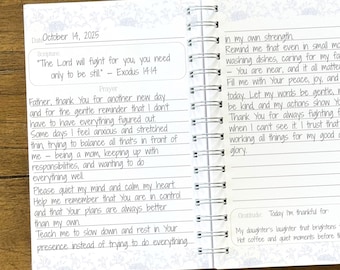 Date: October 14, 2025
Scripture
"The Lord will fight for you, you need
only to be still." – Exodus 14:14
Prayer
Father, thank You for another new day
and for the gentle reminder that I don't
have to have everything figured out.
Some days I feel anxious and stretched
thin, trying to balance all that's in front of
me – being a mom, keeping up with
responsibilities, and wanting to do
everything well.
Please quiet my mind and calm my heart.
Help me remember that You are in control
and that Your plans are always better
than my own.
Teach me to slow down and rest in Your
presence instead of trying to do everything
in my own strength.
Remind me that even in small mom
washing dishes, caring for my fam
– You are near, and it all matter
Fill me with Your peace, joy, and
today. Let my words be gentle, m
be kind, and my actions show Y
Thank You for always fighting f
when I can't see it. I trust that
working all things for my good
glory.
Gratitude Today I'm thankful for
My daughter's laughter that brightens
hot coffee and quiet moments before t